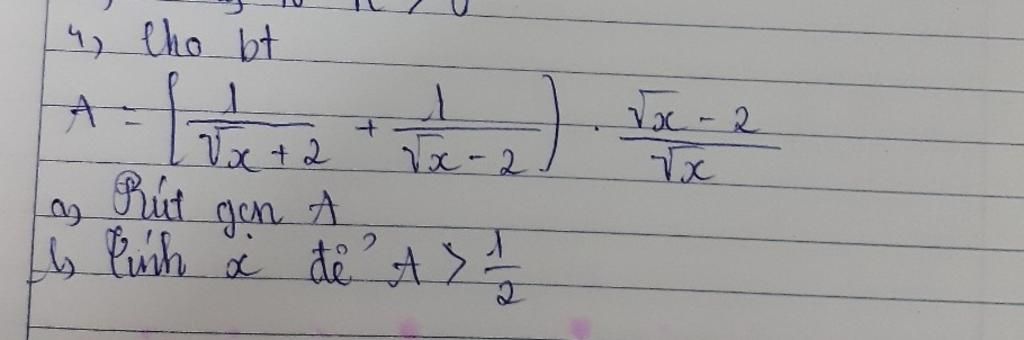 4, Cho bt
A = [1/(√x + 2) + 1/(√x - 2)) . (√x - 2)/√x
a, Rút gọn A
b, Tính x để A > 1/2